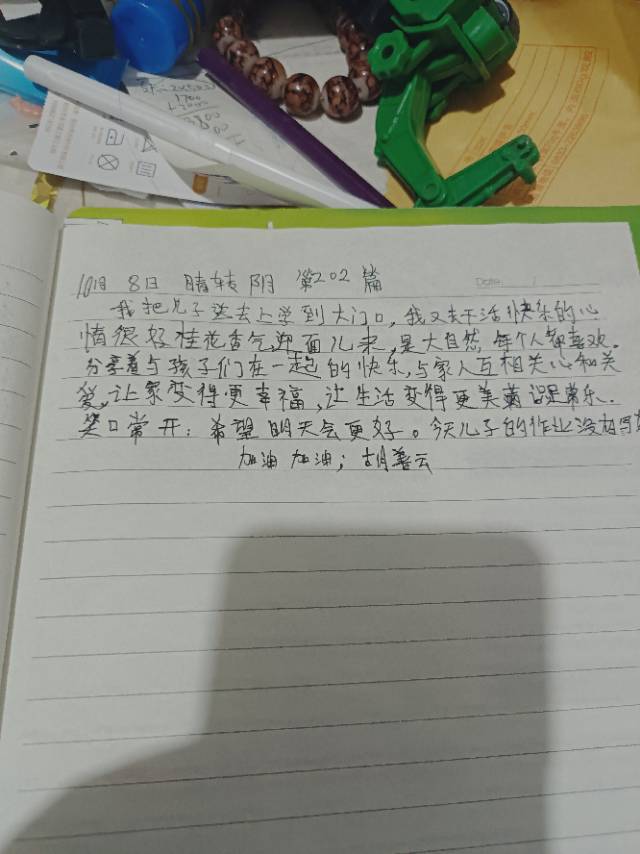 10月 8日 晴转阴 第202篇
Date
我把儿子送去上学到大门口,我又关于活快乐的心
情很好桂花香气,迎面儿来,是大自然,每个人都喜欢.
分享着与孩子们在一起的快乐,与家人互相关心和关
爱,让家变得更幸福,让生活变得更美满 知足常乐.
笑口常开;希望明天会更好。今天儿子的作业没有写
加油 加油;胡善云